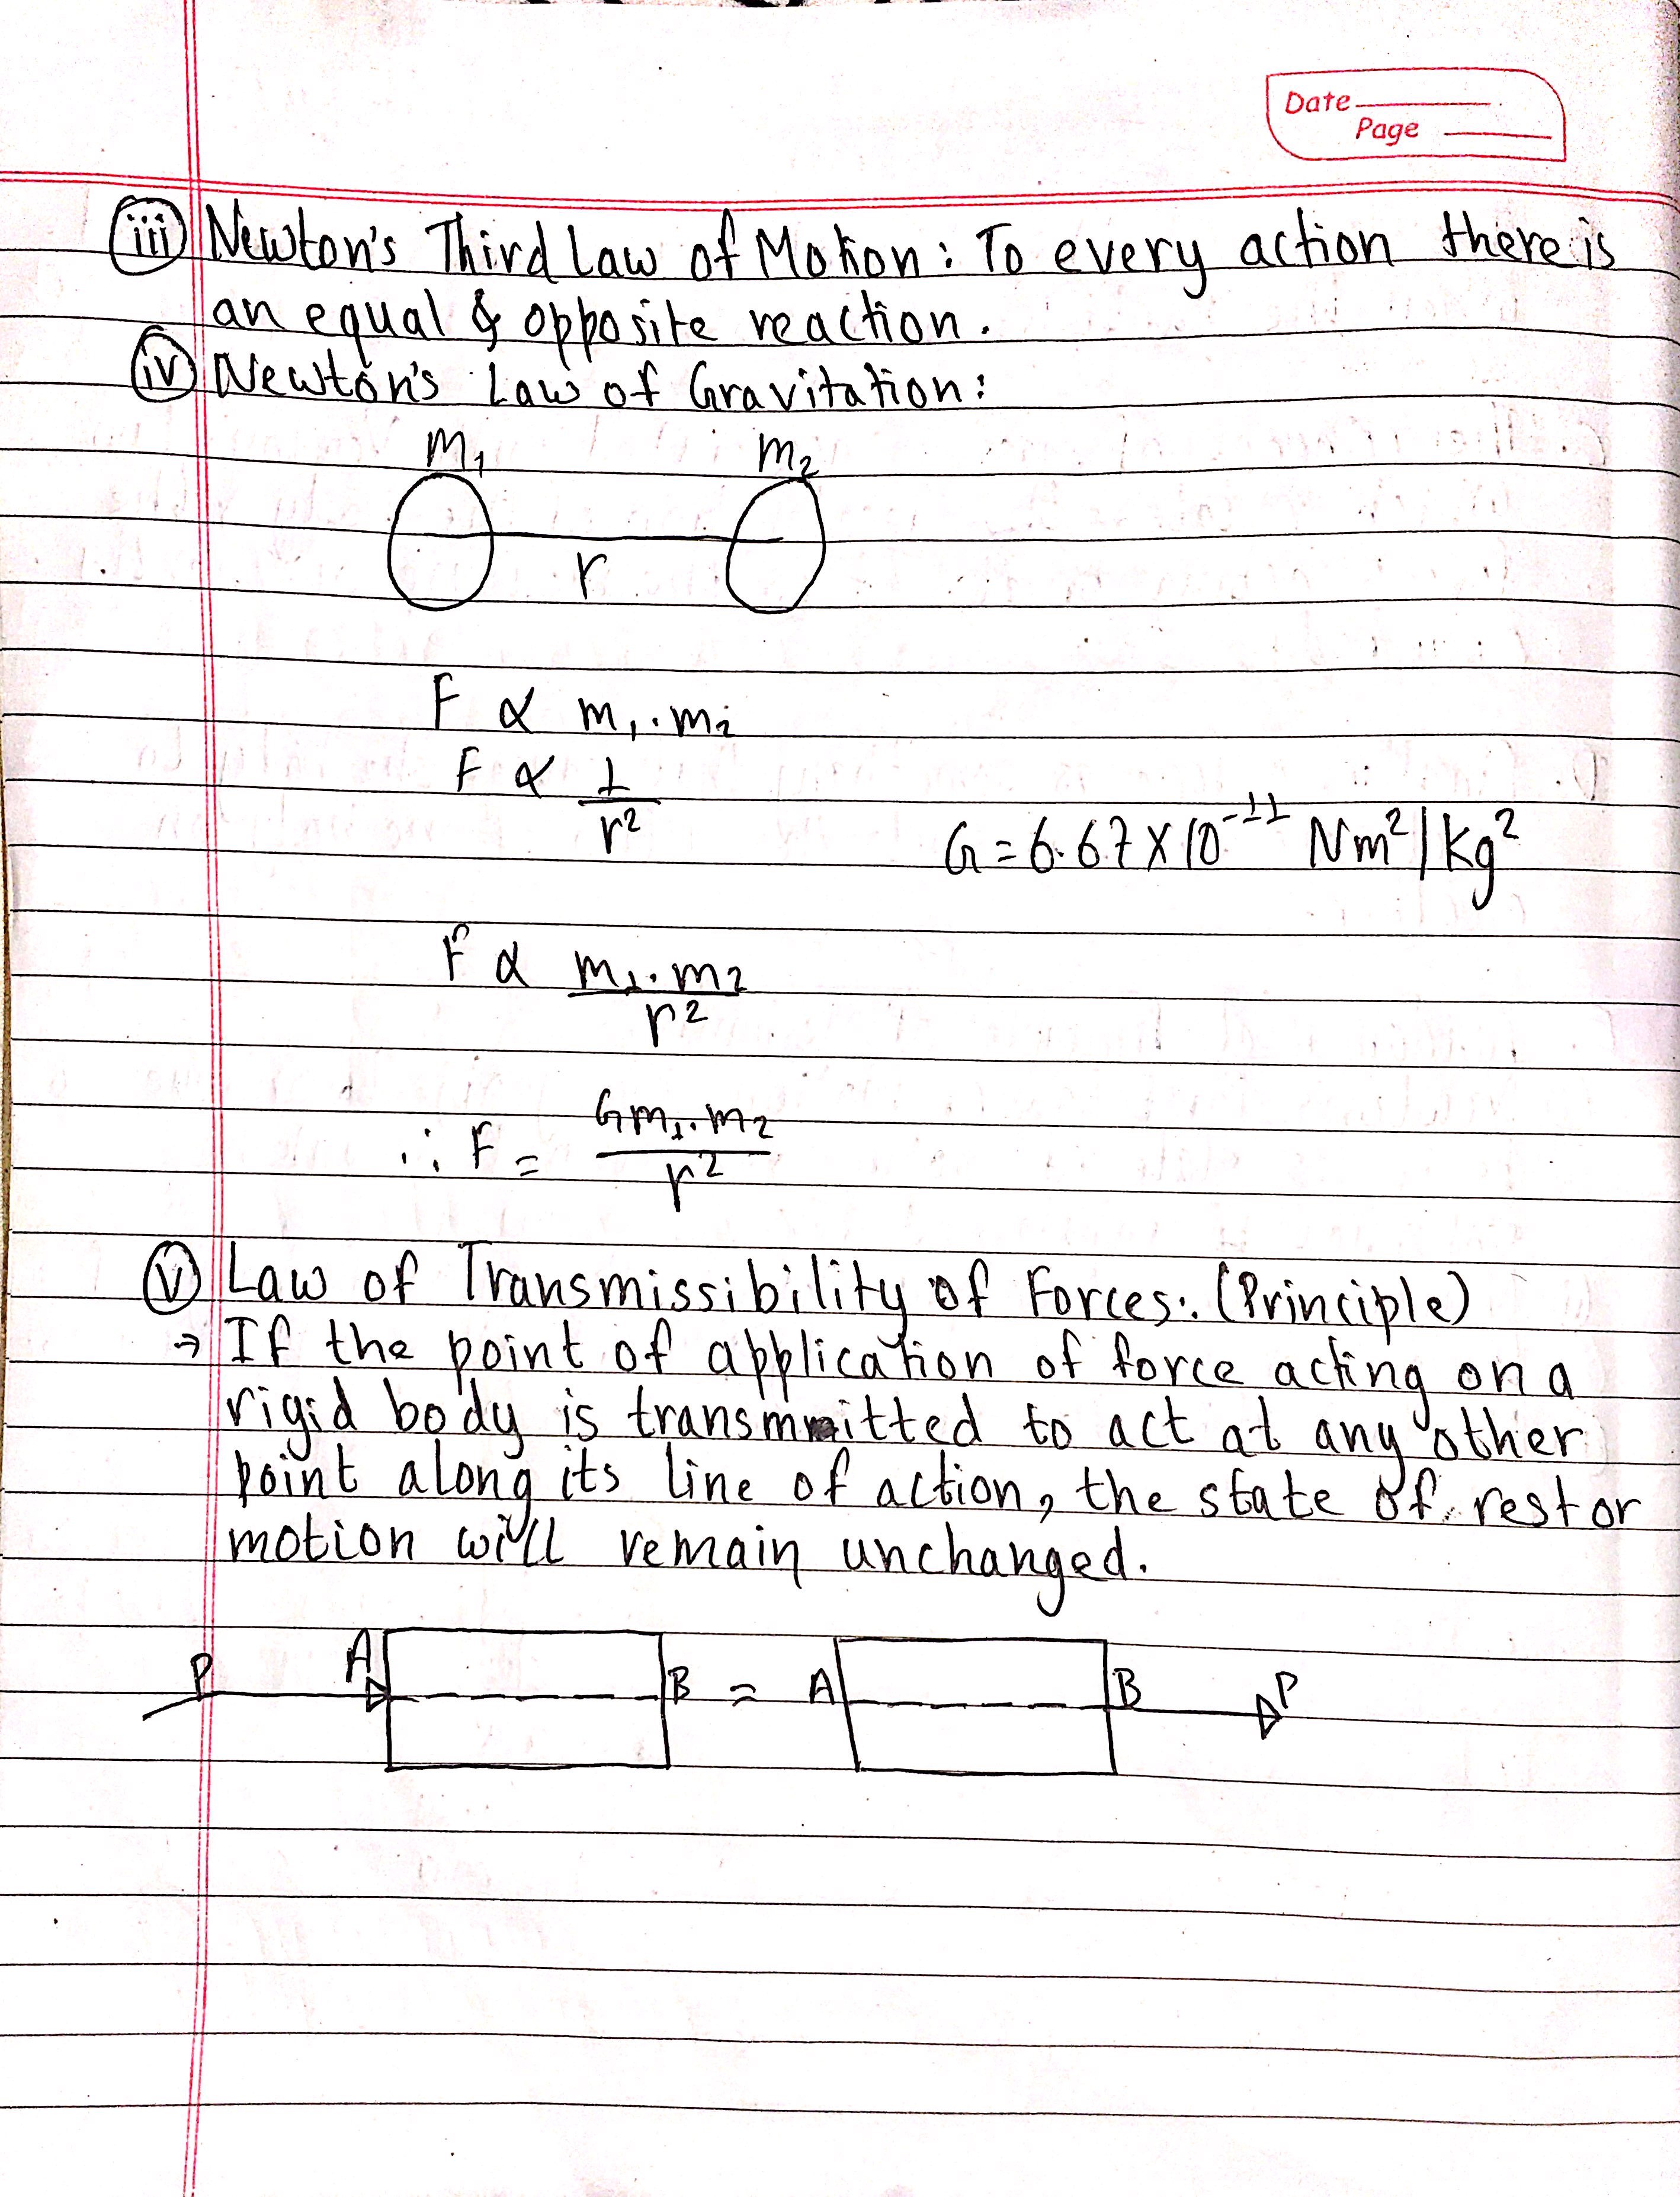 Date
Page
iii Newton's Third Law of Motion: To every action there is
an equal & opposite reaction.
iv Newton's Law of Gravitation:
m₁ m₂
r
F ∝ m₁.m₂
F ∝ 1/r²
G = 6.67 × 10⁻¹¹ Nm²/kg²
F ∝ m₁.m₂/r²
∴ F = Gm₁.m₂/r²
v Law of Transmissibility of Forces: (Principle)
→ If the point of application of force acting on a
rigid body is transmmitted to act at any other
point along its line of action, the state of rest or
motion will remain unchanged.
P A B = A B P